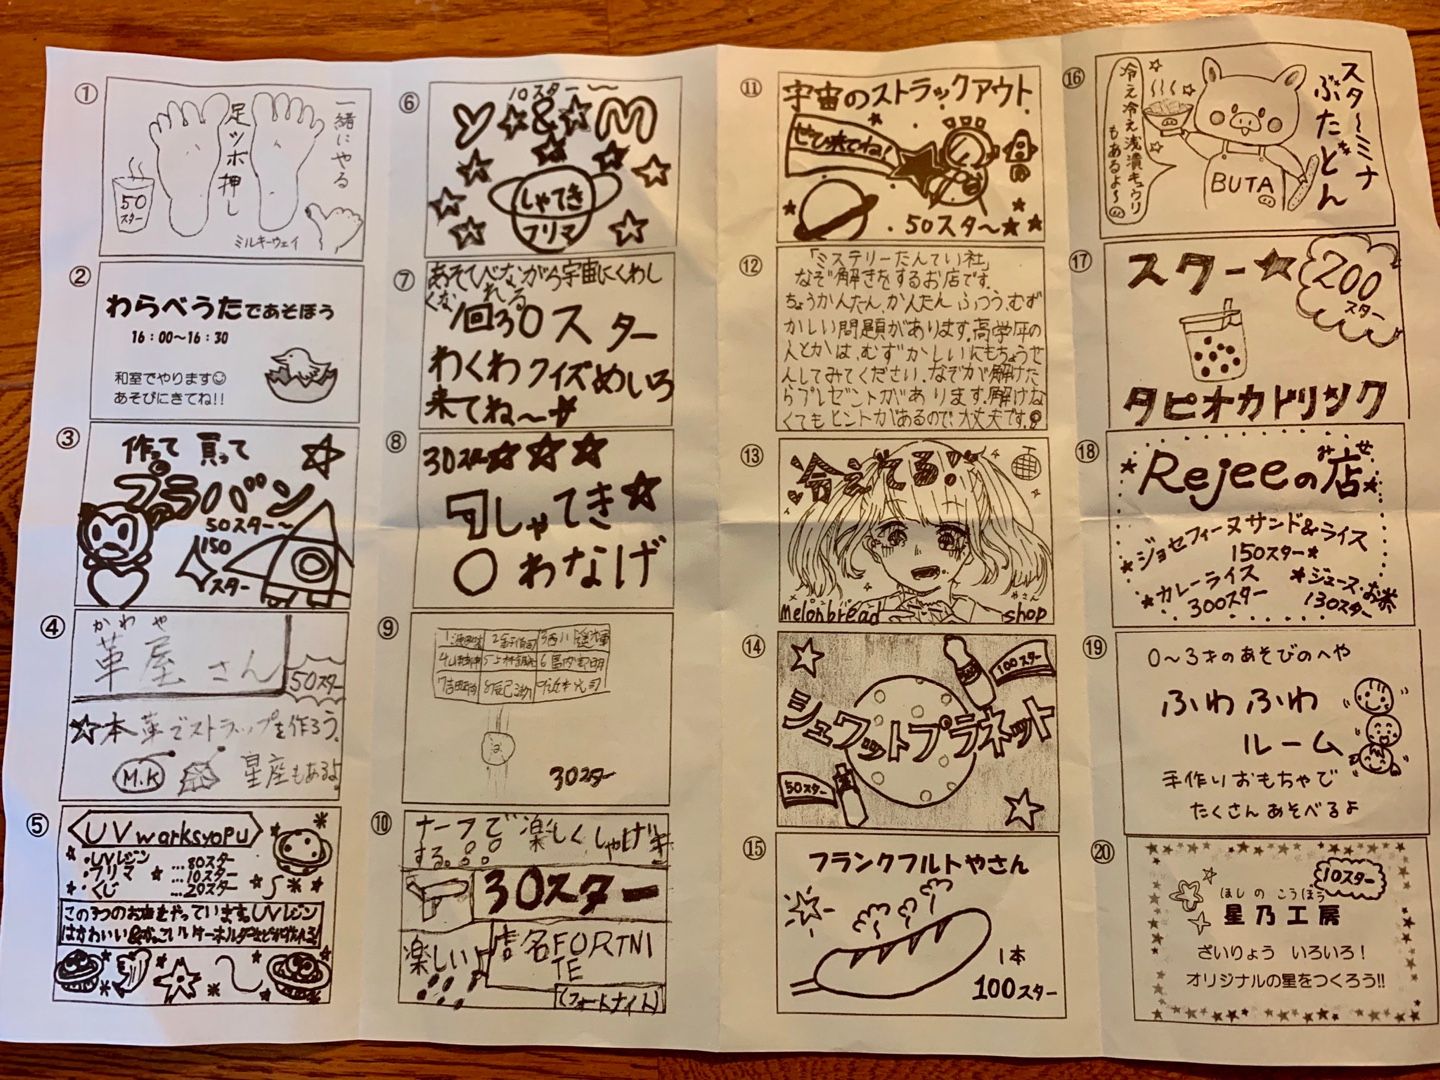 ①
一緒にやる
足ツボ押し
50
スター
ミルキーウェイ
②
わらべうたであそぼう
16：00～16：30
和室でやります☺
あそびにきてね!!
③
作って 買って
プラバン
50スター～
150
スター
④
かわや
革屋さん
50スター
☆本革でストラップを作ろう。
M.K
星座もあるよ
⑤
UV warksyopu
・UVレジン …80スター
・フリマ …10スター
・くじ …20スター
この3つのお店をやっています。UVレジン
⑥
10スター～
Y☆&☆M
しゃてき
フリマ
⑦
あそびながら宇宙にくわし
くなれる
1回30スター
わくわクイズめいろ
来てね～
⑧
30スター☆☆☆
しゃてき☆
わなげ
⑨
30スター
⑩
ナーフで楽しくしゃげき
する。
30スター
楽しい
店名FORTNI
TE
(フォートナイト)
⑪
宇宙のストラックアウト
ぜひ来てね!
50スター★★
⑫
「ミステリーたんてい社」
なぞ解きをするお店です。
ちょうかんたん かんたん ふつう、むず
かしい問題があります。高学年の
人とかは、むずかしいにもちょうせ
んしてみてください。なぞが解けた
らプレゼントがあります。解けな
くてもヒントがあるので、大丈夫です。
⑬
冷えてる!!
melonbread
やさん
shop
⑭
100スター
シュワットプラネット
50スター
⑮
フランクフルトやさん
1本
100スター
⑯
スタ～ミナ
ぶたどん
冷え冷え浅漬キュウリ
もあるよ～
BUTA
⑰
スター★
200
スター
タピオカドリンク
⑱
みせ
Rejeeの店
★ジョセフィーヌサンド&ライス
150スター★
★カレーライス
300スター
★ジュース・お米
130スター
⑲
0～3才のあそびのへや
ふわふわ
ルーム
手作りおもちゃで
たくさんあそべるよ
⑳
10スター
ほしのこうぼう
星乃工房
ざいりょう いろいろ!
オリジナルの星をつくろう!!